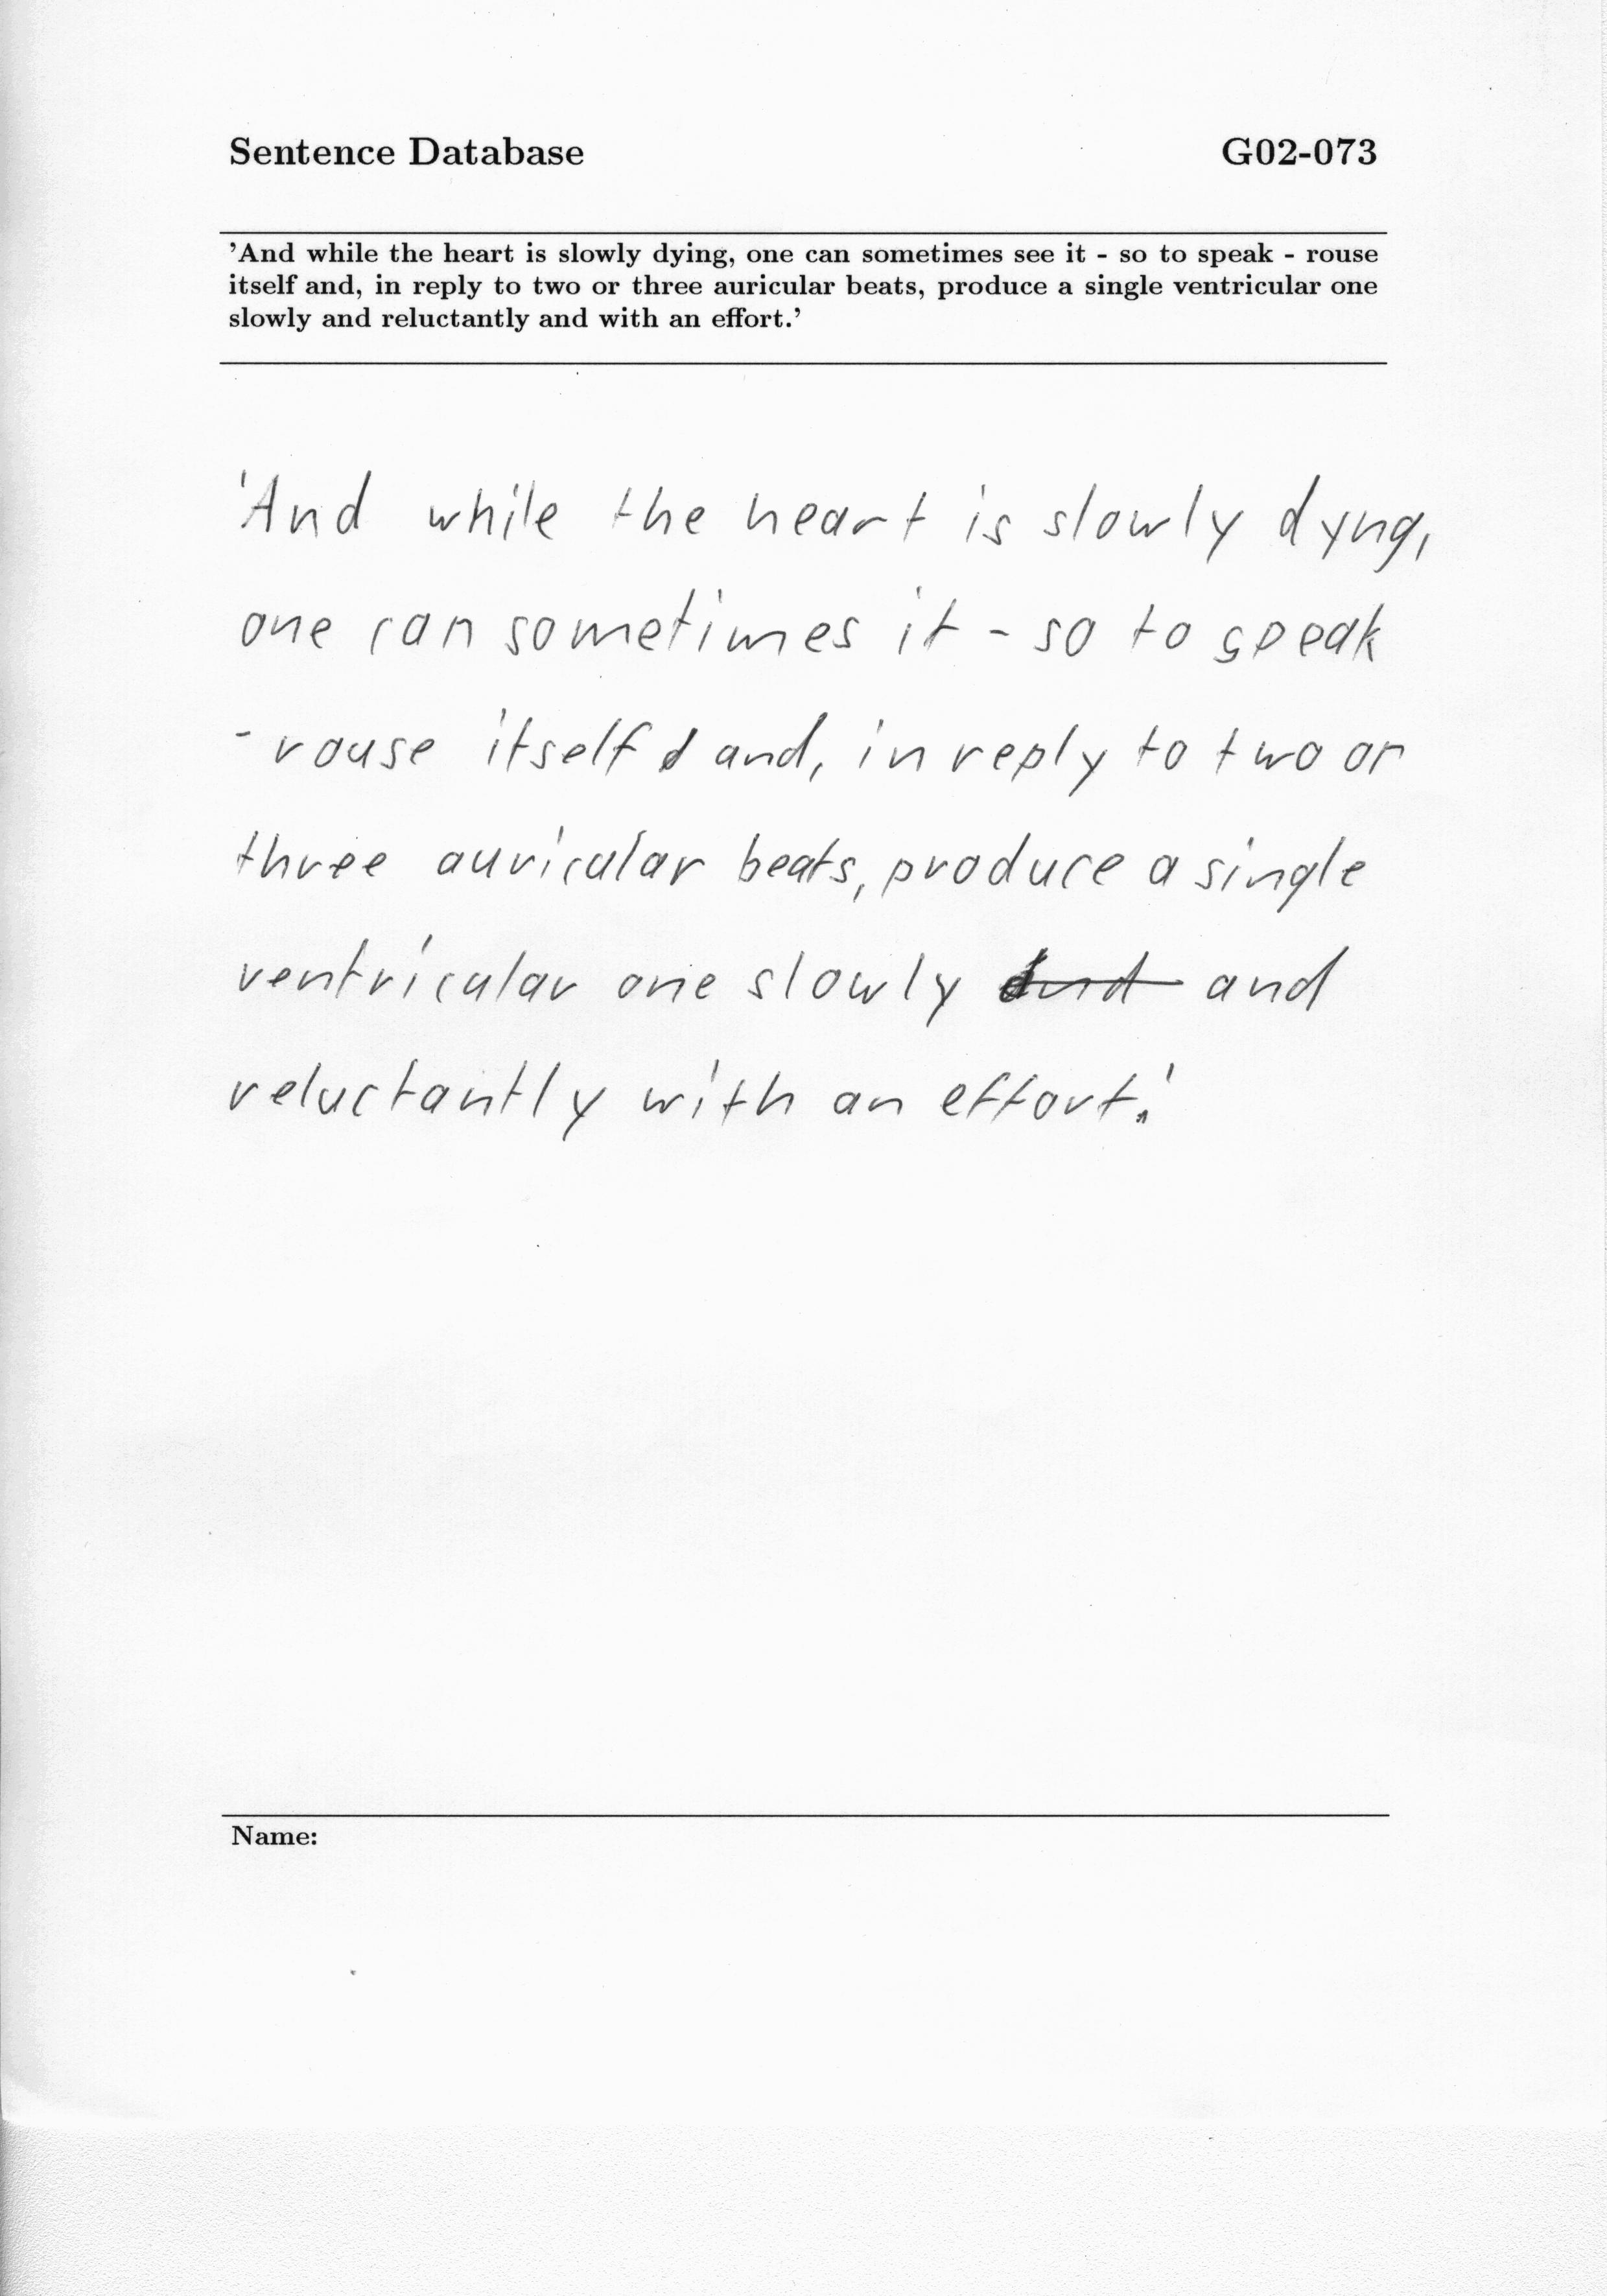 Sentence Database G02-073
'And while the heart is slowly dying, one can sometimes see it - so to speak - rouse
itself and, in reply to two or three auricular beats, produce a single ventricular one
slowly and reluctantly and with an effort.'
'And while the heart is slowly dyng,
one can sometimes it - so to speak
- rouse itself and, in reply to two or
three auricular beats, produce a single
ventricular one slowly and and
reluctantly with an effort.'
Name: